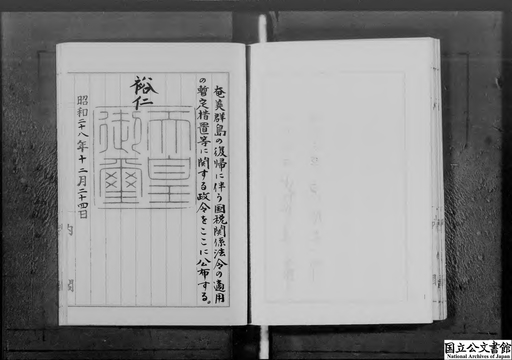 奄美群島の復帰に伴う国税関係法令の適用
の暫定措置等に関する政令をここに公布する。
裕仁
天皇
御璽
昭和二十八年十二月二十四日
内閣
国立公文書館
National Archives of Japan